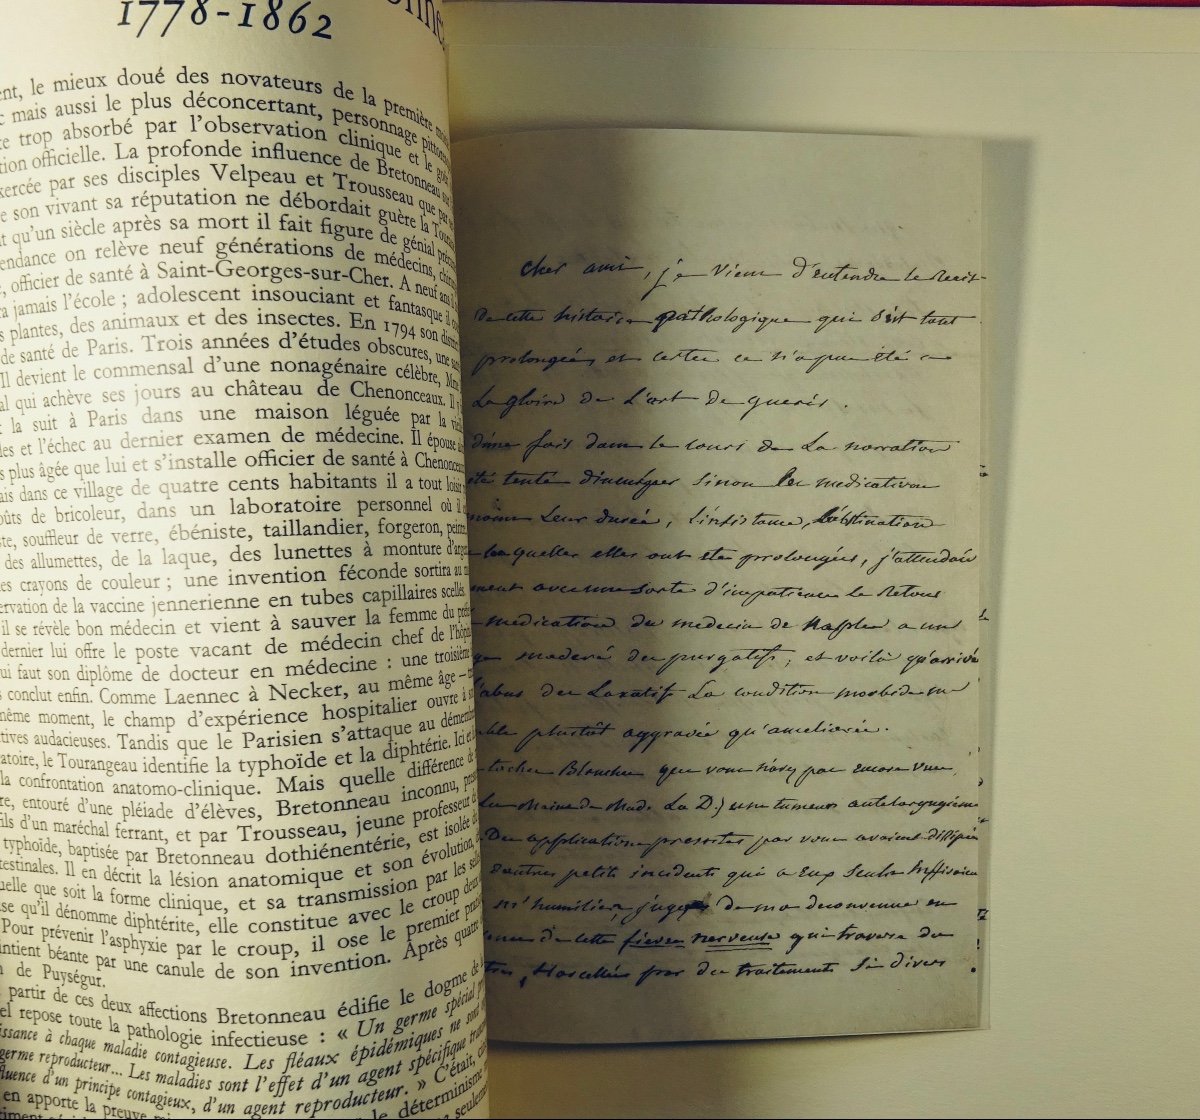 1778-1862
ent, le mieux doué des novateurs de la première
mais aussi le plus déconcertant, personnage
trop absorbé par l'observation clinique et le goût
tion officielle. La profonde influence de Bretonneau sur
exercée par ses disciples Velpeau et Trousseau que par
son vivant sa réputation ne débordait guère la
t qu'un siècle après sa mort il fait figure de génial
endance on relève neuf générations de médecins,
, officier de santé à Saint-Georges-sur-Cher. A neuf ans il
ra jamais l'école ; adolescent insouciant et fantasque il
s plantes, des animaux et des insectes. En 1794 son
de santé de Paris. Trois années d'études obscures, une
Il devient le commensal d'une nonagénaire célèbre, Mme
al qui achève ses jours au château de Chenonceaux. Il
la suit à Paris dans une maison léguée par la
les et l'échec au dernier examen de médecine. Il épouse
s plus âgée que lui et s'installe officier de santé à
ais dans ce village de quatre cents habitants il a tout loisir
oûts de bricoleur, dans un laboratoire personnel où il
ste, souffleur de verre, ébéniste, taillandier, forgeron,
des allumettes, de la laque, des lunettes à monture
es crayons de couleur ; une invention féconde sortira
ervation de la vaccine jennerienne en tubes capillaires
il se révèle bon médecin et vient à sauver la femme du
dernier lui offre le poste vacant de médecin chef de
ui faut son diplôme de docteur en médecine : une troisième
s conclut enfin. Comme Laennec à Necker, au même âge –
même moment, le champ d'expérience hospitalier ouvre
tives audacieuses. Tandis que le Parisien s'attaque au
ratoire, le Tourangeau identifie la typhoïde et la diphtérie. Ici et
la confrontation anatomo-clinique. Mais quelle différence
re, entouré d'une pléiade d'élèves, Bretonneau inconnu,
fils d'un maréchal ferrant, et par Trousseau, jeune professeur
typhoïde, baptisée par Bretonneau dothiénentérie, est isolée
testinales. Il en décrit la lésion anatomique et son évolution,
uelle que soit la forme clinique, et sa transmission par les
se qu'il dénomme diphtérite, elle constitue avec le croup deux
Pour prévenir l'asphyxie par le croup, il ose le premier
intient béante par une canule de son invention. Après quatre
de Puységur.
partir de ces deux affections Bretonneau édifie le dogme de
el repose toute la pathologie infectieuse : « Un germe spécial
issance à chaque maladie contagieuse. Les fléaux épidémiques ne sont
germe reproducteur... Les maladies sont l'effet d'un agent spécifique
fluence d'un principe contagieux, d'un agent reproducteur. » C'était,
en apporte la preuve
le déterminisme
cher ami, je viens d'entendre le recit
de cette histoire pathologique qui s'est tant
prolongée, et certes ce n'a pas été
la gloire de l'art de guerir.
fois dans le cours de la narration
été tenté d'incriminer sinon les medications
moins leur durée, l'insistance, l'obstination
laquelle elles ont été prolongées, j'attendais
ment avec une sorte d'impatience le retour
medication du medecin de Naples a un
moderé des purgatifs, et voilà qu'arrivé
l'abus des laxatifs la condition morbide
plustôt aggravée qu'ameliorée.
taches blanches que vous n'avez pas encore vues,
De applications prescrites par vous avaient dissipé
d'autres petits incidents qui a eux seuls
m'humilier, jugez de ma deconvenue en
de cette fievre nerveuse qui traverse
harcelée par des traitements si divers